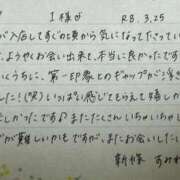 I様へ R8.3.25
が入店してすぐの頃から気になってたってい
、ようやくお会い出来て、本当に良かったです
くうちに、第一印象とのギャップが
した!(照)いっぱい感じてもらえて嬉しか
ったです♪またたくさんいちゃいちゃし
が難しいかもですが、またお会いした
新様 すみれ